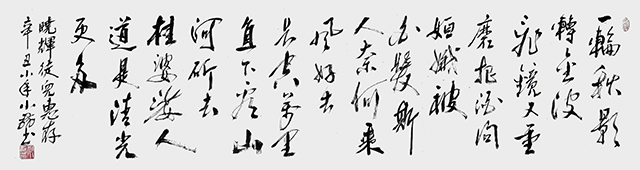 一輪秋影
轉金波
飛鏡又重
磨把酒問
姮娥被
白髮欺
人奈何乘
風好去
長空萬里
直下看山
河斫去
桂婆娑人
道是清光
更多
曉輝徒兒惠存
辛丑小年小書